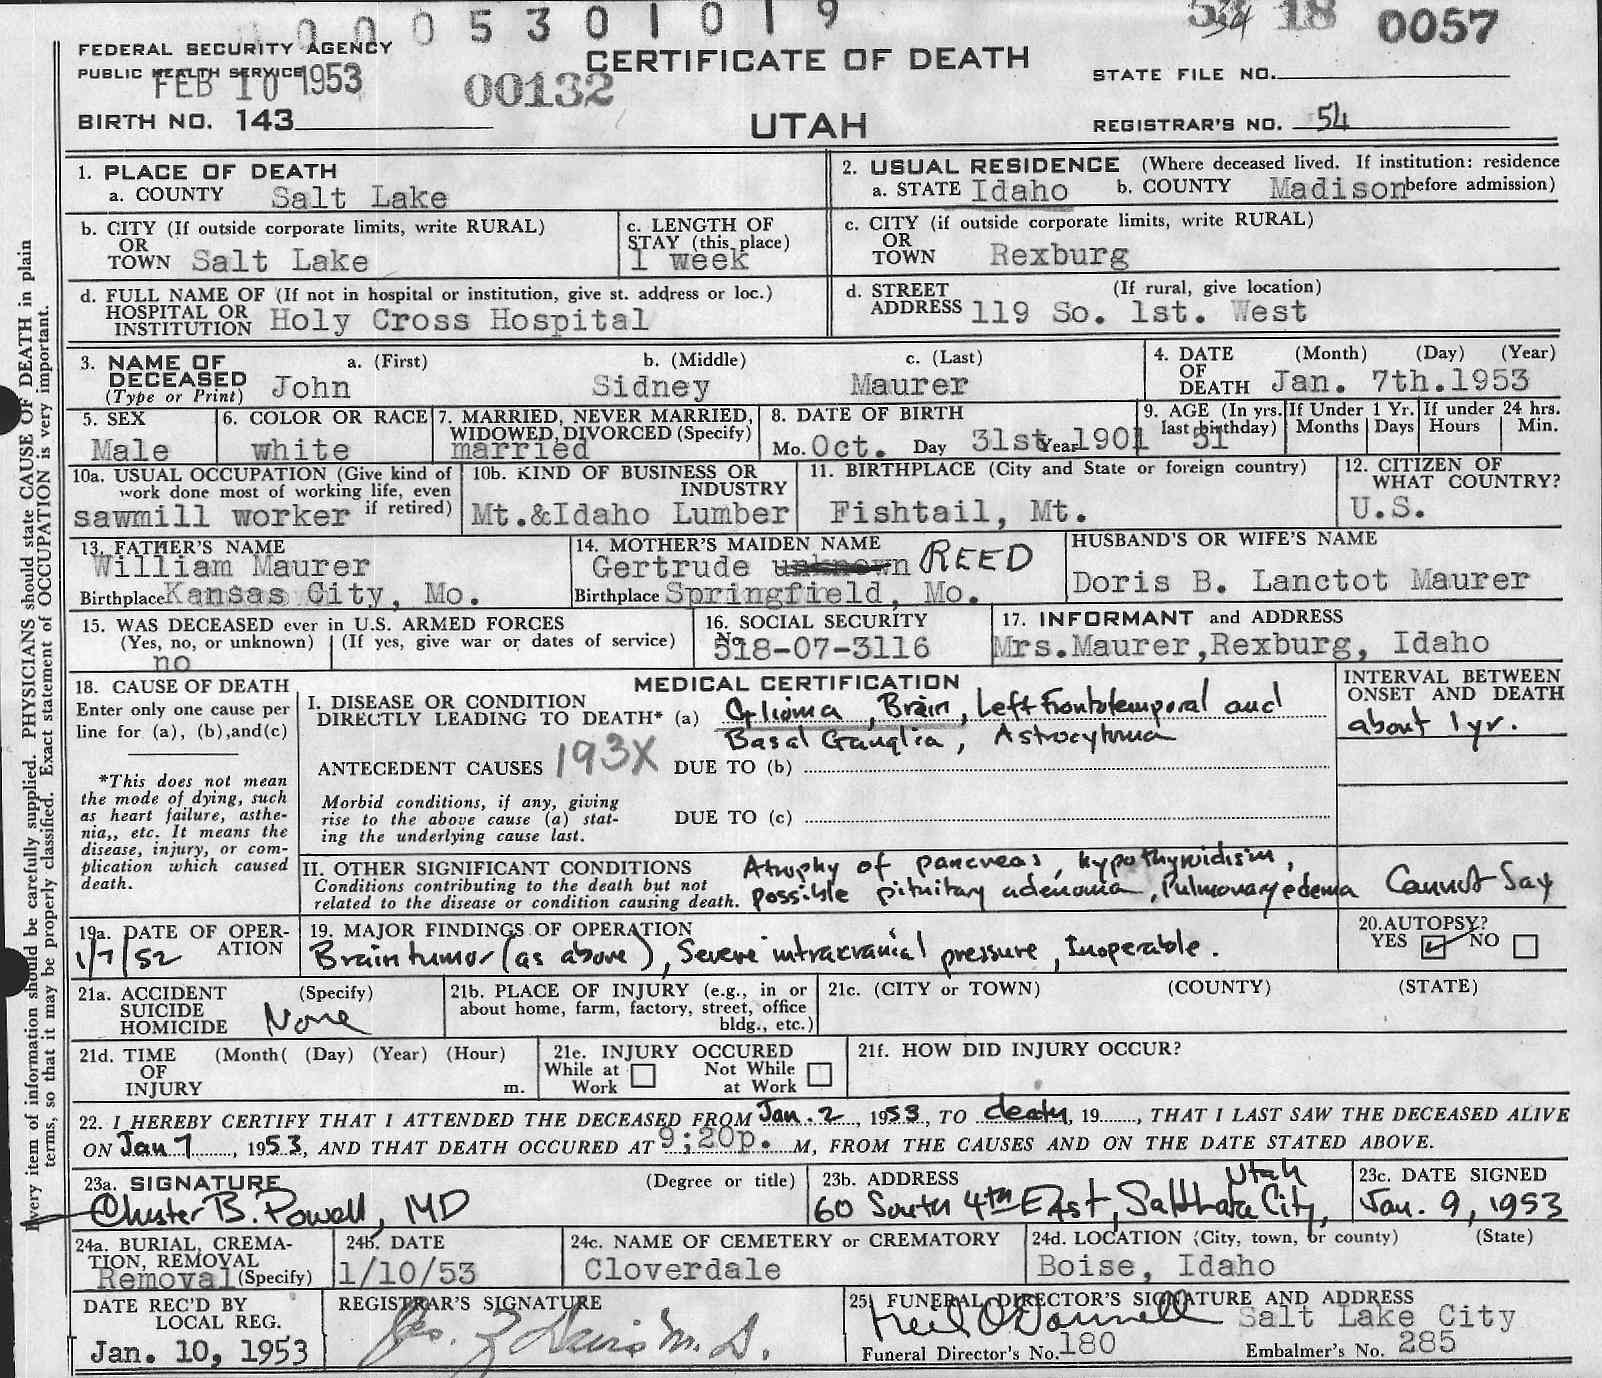 0 0 0 5 3 0 1 0 1 9 18 0057
FEDERAL SECURITY AGENCY
PUBLIC HEALTH SERVICE
FEB 10 1953
00132
CERTIFICATE OF DEATH
STATE FILE NO.
BIRTH NO. 143
UTAH
REGISTRAR'S NO. 54
1. PLACE OF DEATH
a. COUNTY Salt Lake
2. USUAL RESIDENCE (Where deceased lived. If institution: residence
a. STATE Idaho b. COUNTY Madison before admission)
b. CITY (If outside corporate limits, write RURAL)
OR
TOWN Salt Lake
c. LENGTH OF
STAY (this place)
1 week
c. CITY (if outside corporate limits, write RURAL)
OR
TOWN Rexburg
d. FULL NAME OF (If not in hospital or institution, give st. address or loc.)
HOSPITAL OR
INSTITUTION Holy Cross Hospital
d. STREET (If rural, give location)
ADDRESS 119 So. 1st. West
3. NAME OF a. (First) b. (Middle) c. (Last)
DECEASED John Sidney Maurer
(Type or Print)
4. DATE (Month) (Day) (Year)
OF
DEATH Jan. 7th.1953
5. SEX
Male
6. COLOR OR RACE
white
7. MARRIED, NEVER MARRIED,
WIDOWED, DIVORCED (Specify)
married
8. DATE OF BIRTH
Mo. Oct. Day 31st Year 1901
9. AGE (In yrs.
last birthday)
51
If Under 1 Yr.
Months Days
If under 24 hrs.
Hours Min.
10a. USUAL OCCUPATION (Give kind of
work done most of working life, even
if retired)
sawmill worker
10b. KIND OF BUSINESS OR
INDUSTRY
Mt.&Idaho Lumber
11. BIRTHPLACE (City and State or foreign country)
Fishtail, Mt.
12. CITIZEN OF
WHAT COUNTRY?
U.S.
13. FATHER'S NAME
William Maurer
Birthplace Kansas City, Mo.
14. MOTHER'S MAIDEN NAME
Gertrude unknown REED
Birthplace Springfield, Mo.
HUSBAND'S OR WIFE'S NAME
Doris B. Lanctot Maurer
15. WAS DECEASED ever in U.S. ARMED FORCES
(Yes, no, or unknown) (If yes, give war or dates of service)
no
16. SOCIAL SECURITY
No
518-07-3116
17. INFORMANT and ADDRESS
Mrs.Maurer,Rexburg, Idaho
18. CAUSE OF DEATH
Enter only one cause per
line for (a), (b),and(c)
*This does not mean
the mode of dying, such
as heart failure, asthe-
nia,, etc. It means the
disease, injury, or com-
plication which caused
death.
MEDICAL CERTIFICATION
I. DISEASE OR CONDITION
DIRECTLY LEADING TO DEATH* (a) Glioma, Brain, Left Frontotemporal and
Basal Ganglia, Astrocytoma
ANTECEDENT CAUSES 193X DUE TO (b)
Morbid conditions, if any, giving
rise to the above cause (a) stat-
ing the underlying cause last.
DUE TO (c)
INTERVAL BETWEEN
ONSET AND DEATH
about 1 yr.
II. OTHER SIGNIFICANT CONDITIONS
Conditions contributing to the death but not
related to the disease or condition causing death.
Atrophy of pancreas, hypothyroidism,
possible pituitary adenoma, Pulmonary edema Cannot Say
19a. DATE OF OPER-
ATION
1/7/52
19. MAJOR FINDINGS OF OPERATION
Brain tumor (as above), Severe intracranial pressure, Inoperable.
20. AUTOPSY?
YES ☑ NO ☐
21a. ACCIDENT (Specify)
SUICIDE
HOMICIDE None
21b. PLACE OF INJURY (e.g., in or
about home, farm, factory, street, office
bldg., etc.)
21c. (CITY or TOWN) (COUNTY) (STATE)
21d. TIME (Month( (Day) (Year) (Hour)
OF
INJURY m.
21e. INJURY OCCURED
While at Not While
Work at Work
21f. HOW DID INJURY OCCUR?
22. I HEREBY CERTIFY THAT I ATTENDED THE DECEASED FROM Jan. 2, 1953, TO death, 19......, THAT I LAST SAW THE DECEASED ALIVE
ON Jan 7, 1953, AND THAT DEATH OCCURED AT 9;20p. M, FROM THE CAUSES AND ON THE DATE STATED ABOVE.
23a. SIGNATURE (Degree or title)
Chester B. Powell, MD
23b. ADDRESS
60 South 4th East, Salt Lake City, Utah
23c. DATE SIGNED
Jan. 9, 1953
24a. BURIAL, CREMA-
TION, REMOVAL
Removal (Specify)
24b. DATE
1/10/53
24c. NAME OF CEMETERY or CREMATORY
Cloverdale
24d. LOCATION (City, town, or county) (State)
Boise, Idaho
DATE REC'D BY
LOCAL REG.
Jan. 10, 1953
REGISTRAR'S SIGNATURE
M.D.
25. FUNERAL DIRECTOR'S SIGNATURE AND ADDRESS
Neil O'Donnell Salt Lake City
Funeral Director's No. 180 Embalmer's No. 285
Every item of information should be carefully supplied. PHYSICIANS should state CAUSE OF DEATH in plain
terms, so that it may be properly classified. Exact statement of OCCUPATION is very important.